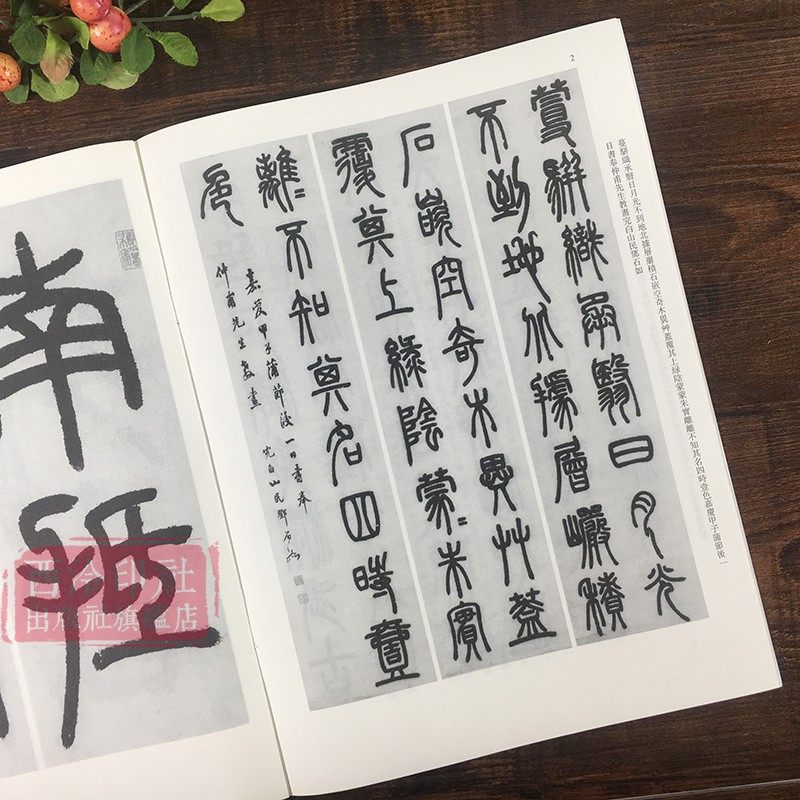 2
蔓駢織承翳日月光不到地北據層巖積石嵌空奇木異艸蓋覆其上綠陰蒙蒙朱實離離不知其名四時壹色嘉慶甲子蒲節後一
日書奉仲甫先生教畫完白山民鄧石如
蔓駢織承翳日月光
不到地北據層巖積
石嵌空奇木異艸蓋
覆其上綠陰蒙〻朱實
離〻不知其名四時壹
色
嘉慶甲子蒲節後一日書奉
仲甫先生教畫
完白山民鄧石如
南
西泠印社
出版社旗舰店